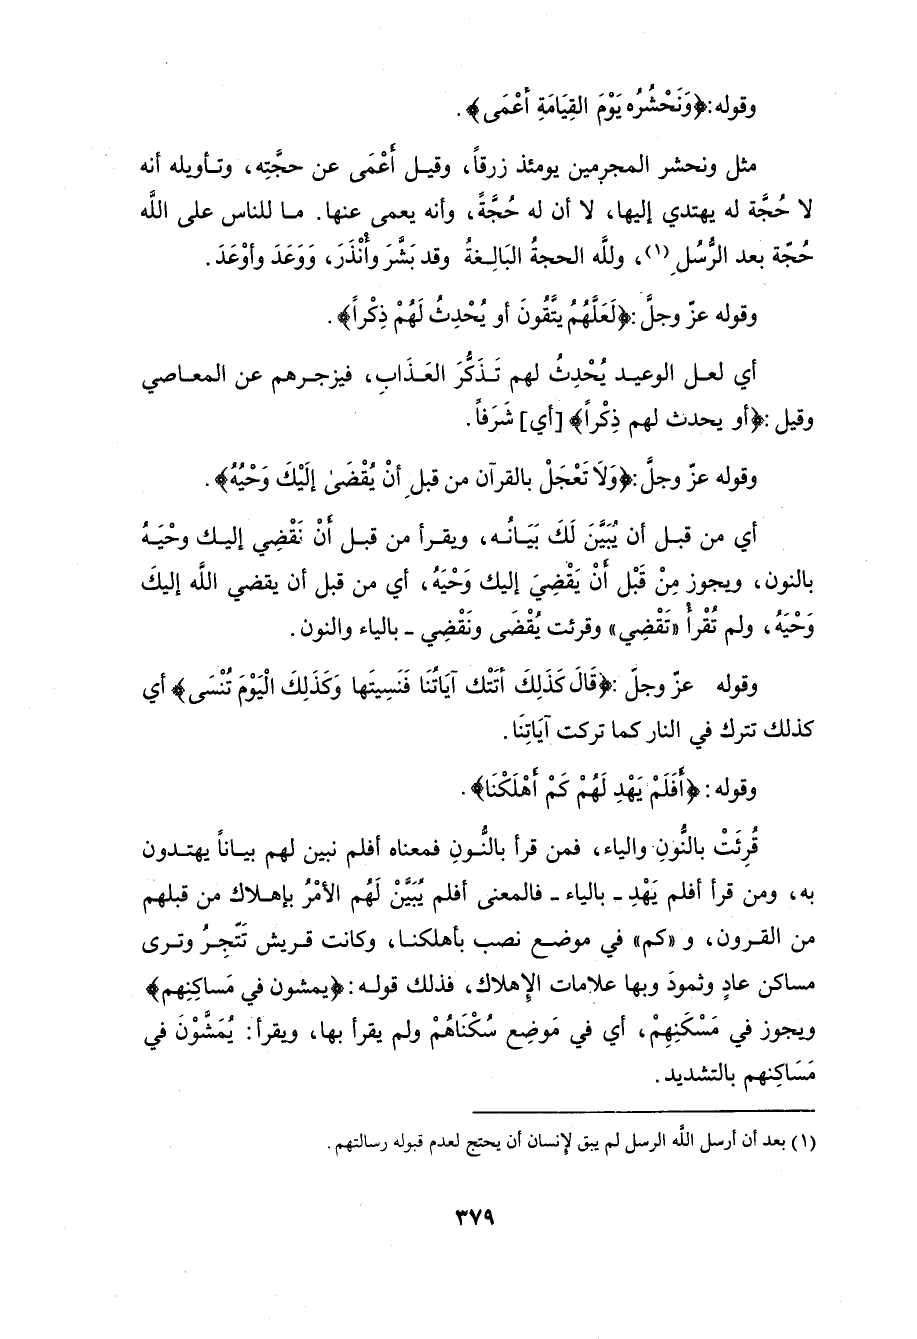 وقوله: ﴿وَنَحْشُرُه يَوْمَ القِيَامَةِ أَعْمَى﴾.
مثل ونحشر المجرمين يومئذ زرقاً، وقيل أَعْمَى عن حجَّتِه، وتأويله أنه
لا حُجَّة له يهتدي إليها، لا أن له حُجَّةً، وأنه يعمى عنها. ما للناس على اللَّه
حُجّة بعد الرُّسُلِ (١)، وللَّه الحجةُ البَالِغةُ وقد بَشَّرَ وأَنْذَرَ، وَوَعَدَ وأوْعَدَ.
وقوله عزّ وجلَّ: ﴿لَعَلَّهُمْ يَتَّقُونَ أو يُحْدِثُ لَهُمْ ذِكْراً﴾.
أي لعل الوعيد يُحْدِثُ لهم تَذَكُّرَ العَذَابِ، فيزجرهم عن المعاصي
وقيل: ﴿أو يحدث لهم ذِكْراً﴾ [أي] شَرَفاً.
وقوله عزّ وجلَّ: ﴿وَلَا تَعْجَلْ بالقرآن من قبلِ أنْ يُقْضَىٰ إلَيْكَ وَحْيُهُ﴾.
أي من قبل أن يُبَيَّنَ لَكَ بَيَانُه، ويقرأ من قبل أَنْ نَقْضِي إليك وحْيَهُ
بالنون، ويجوز مِنْ قَبْل أَنْ يَقْضِيَ إليك وَحْيَهُ، أي من قبل أن يقضي اللَّه إليكَ
وَحْيَهُ، ولم تُقْرأْ «تَقْضِي» وقرئت يُقْضَى ونَقْضِي - بالياء والنون.
وقوله عزّ وجلّ: ﴿قَالَ كَذَلِكَ أَتَتْك آيَاتُنَا فَنَسِيتَها وَكَذَلِكَ الْيَوْمَ تُنْسَى﴾ أي
كذلك تترك في النار كما تركت آيَاتِنَا.
وقوله: ﴿أَفَلَمْ يَهْدِ لَهُمْ كَمْ أَهْلَكْنَا﴾.
قُرِئَتْ بالنُّونِ والياء، فمن قرأ بالنُّونِ فمعناه أفلم نبين لهم بياناً يهتدون
به، ومن قرأ أفلم يَهْدِ - بالياء - فالمعنى أفلم يُبَيَّنْ لَهُم الأمْرُ بإهلاك من قبلهم
من القرون، و «كم» في موضع نصب بأهلكنا، وكانت قريش تَتَّجِرُ وترى
مساكن عادٍ وثمودَ وبها علامات الإهلاك، فذلك قوله: ﴿يمشون في مَساكِنِهم﴾
ويجوز في مَسْكَنِهِمْ، أي في مَوضِع سُكْنَاهُمْ ولم يقرأ بها، ويقرأ: يُمَشَّوْنَ في
مَسَاكِنهم بالتشديد.
(١) بعد أن أرسل اللَّه الرسل لم يبق لإنسان أن يحتج لعدم قبوله رسالتهم.
٣٧٩